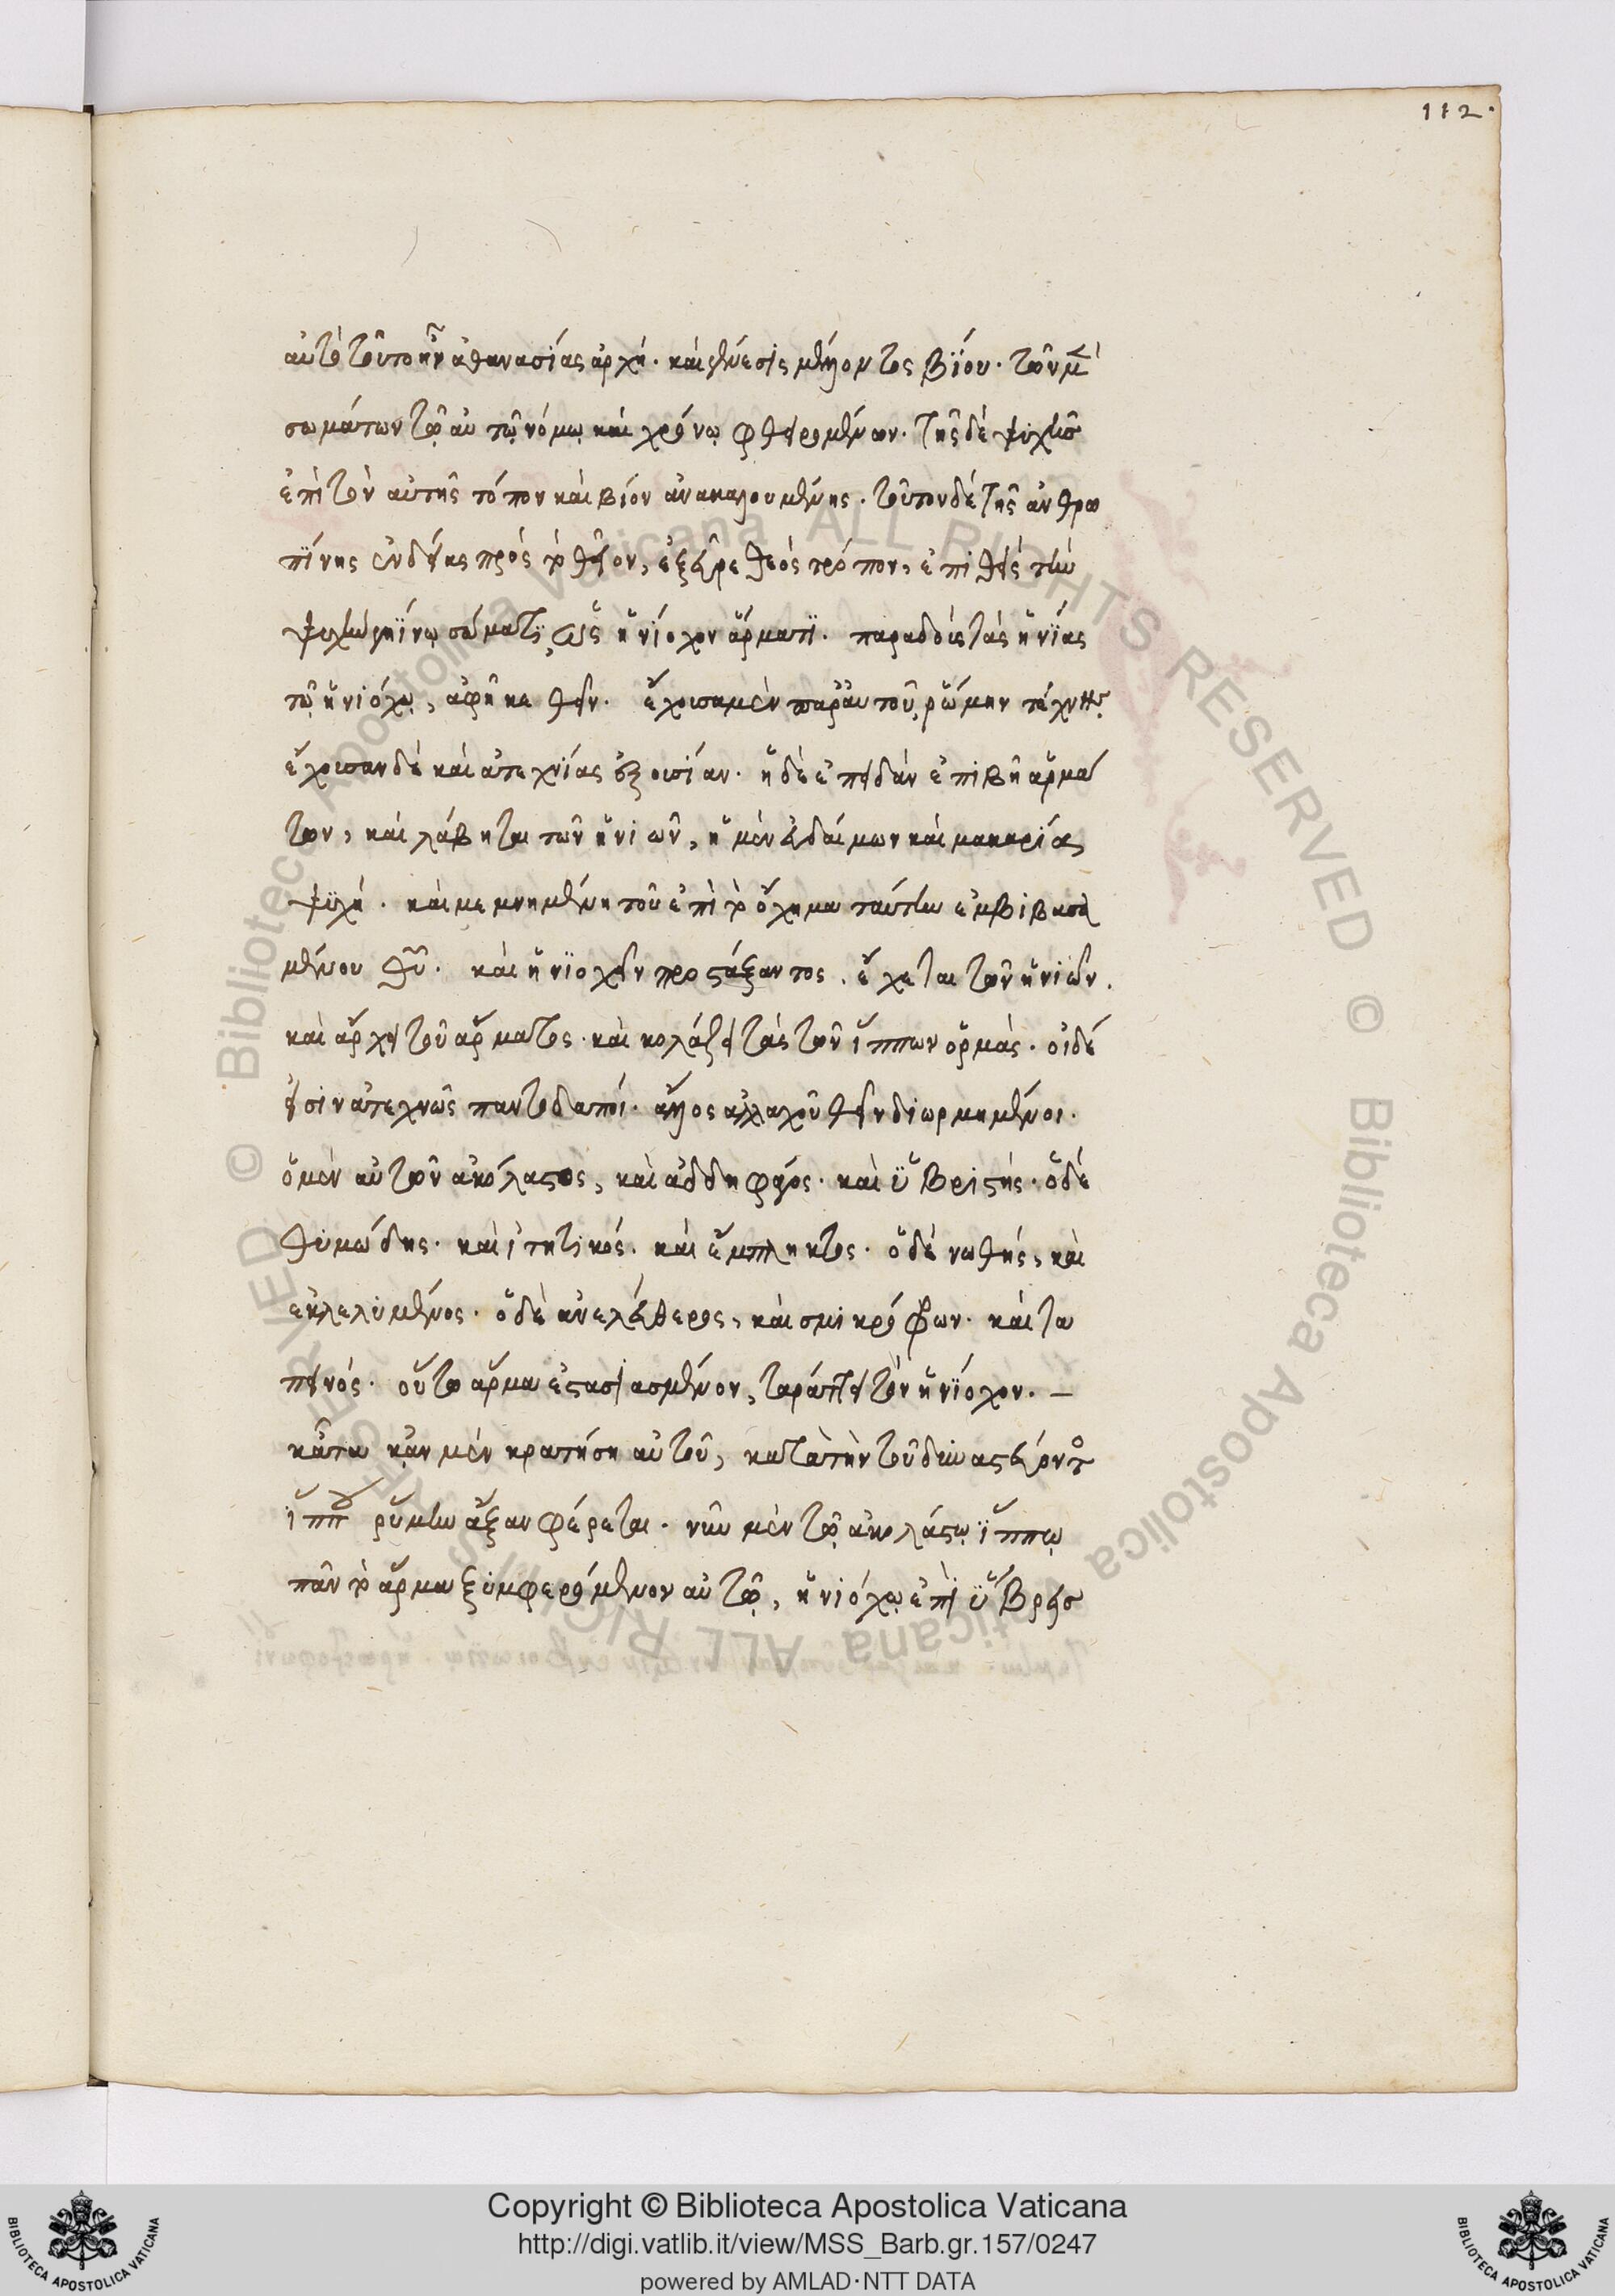 112.
αὐτὸ τοῦτο ἦν ἀθανασίας ἀρχή. καὶ γένεσις μέλλοντος βίου. τῶν μὲν
σωμάτων τῷ αὐτῷ νόμῳ καὶ χρόνῳ φθειρομένων. τῆς δὲ ψυχῆς
ἐπὶ τὸν αὐτῆς τόπον καὶ βίον ἀνακαλουμένης. τοῦτον δὲ τῆς ἀνθρω
πίνης ἐνδείας πρὸς τὸ θεῖον, ἐξεῦρε θεὸς τρόπον, ἐπιθεὶς τὴν
ψυχὴν γηΐνῳ σώματι, ὡς ἡνίοχον ἅρματι. παραδοὺς τὰς ἡνίας
τῷ ἡνιόχῳ, ἀφῆκε θεῖν. ἔχουσα μὲν παρ' αὐτοῦ ῥώμην τέχνης,
ἔχουσαν δὲ καὶ ἀτεχνίας ἐξουσίαν. ἡ δὲ ἐπειδὰν ἐπιβῇ ἁρμά
των, καὶ λάβηται τῶν ἡνιῶν, ἡ μὲν εὐδαίμων καὶ μακαρίας
ψυχή. καὶ μεμνημένη τοῦ ἐπὶ τὸ ὄχημα ταύτην ἐμβιβασα
μένου θῦ. καὶ ἡνιοχεῖν προστάξαντος. ἔχεται τῶν ἡνιῶν.
καὶ ἄρχει τοῦ ἅρματος. καὶ κολάζει τὰς τῶν ἵππων ὁρμάς. οἱ δέ
εἰσιν ἀτεχνῶς παντοδαποί. ἄλλος ἀλλαχοῦ θεῖν διωρμημένοι.
ὁ μὲν αὐτῶν ἀκόλαστος, καὶ ἀδδηφάγος. καὶ ὑβριστής. ὁ δὲ
θυμώδης. καὶ ἰτητικός. καὶ ἔμπληκτος. ὁ δὲ νωθής, καὶ
ἐκλελυμένος. ὁ δὲ ἀνελεύθερος, καὶ σμικρόφρων. καὶ τα
πεινός. οὕτω ἅρμα ἐστασιασμένον, ταράττει τὸν ἡνίοχον. –
κᾆτα κἂν μὲν κρατήσῃ αὐτοῦ, κατὰ τὴν τοῦ δυναστεύοντος
ἵππου ῥύμην ἄξαν φέρεται. νῦν μὲν τῷ ἀκολάστῳ ἵππῳ
πᾶν τὸ ἅρμα ξυμφερόμενον αὐτῷ, ἡνιόχῳ ἐπὶ ὕβρεις
Copyright © Biblioteca Apostolica Vaticana
http://digi.vatlib.it/view/MSS_Barb.gr.157/0247
powered by AMLAD·NTT DATA
BIBLIOTECA APOSTOLICA VATICANA
BIBLIOTECA APOSTOLICA VATICANA
© Biblioteca Apostolica Vaticana ALL RIGHTS RESERVED © Biblioteca Apostolica Vaticana ALL RIGHTS RESERVED